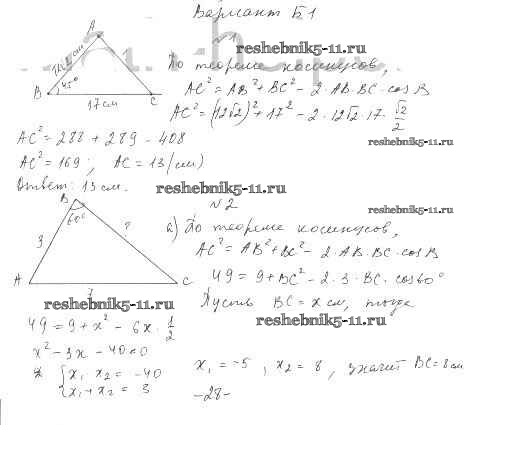 Вариант Б1
№1
reshebnik5-11.ru
A
12√2 см
?
45°
B
17 см
C
По теореме косинусов,
AC² = AB² + BC² - 2·AB·BC·cos B
AC² = (12√2)² + 17² - 2·12√2·17·√2/2
AC² = 288 + 289 - 408
reshebnik5-11.ru
AC² = 169; AC = 13 (см)
Ответ: 13 см.
reshebnik5-11.ru
№2
reshebnik5-11.ru
B
60°
3
?
A
7
C
а) По теореме косинусов,
AC² = AB² + BC² - 2·AB·BC·cos B
49 = 9 + BC² - 2·3·BC·cos60°
Пусть BC = x см, тогда
reshebnik5-11.ru
reshebnik5-11.ru
49 = 9 + x² - 6x·1/2
x² - 3x - 40 = 0
{ x₁ x₂ = -40
x₁ + x₂ = 3
x₁ = -5, x₂ = 8, значит BC = 8 см
-28-